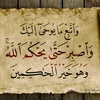 وَاتَّبِعْ مَا يُوحَىٰ إِلَيْكَ
وَاصْبِرْ حَتَّىٰ يَحْكُمَ اللَّهُ
وَهُوَ خَيْرُ الْحَاكِمِينَ